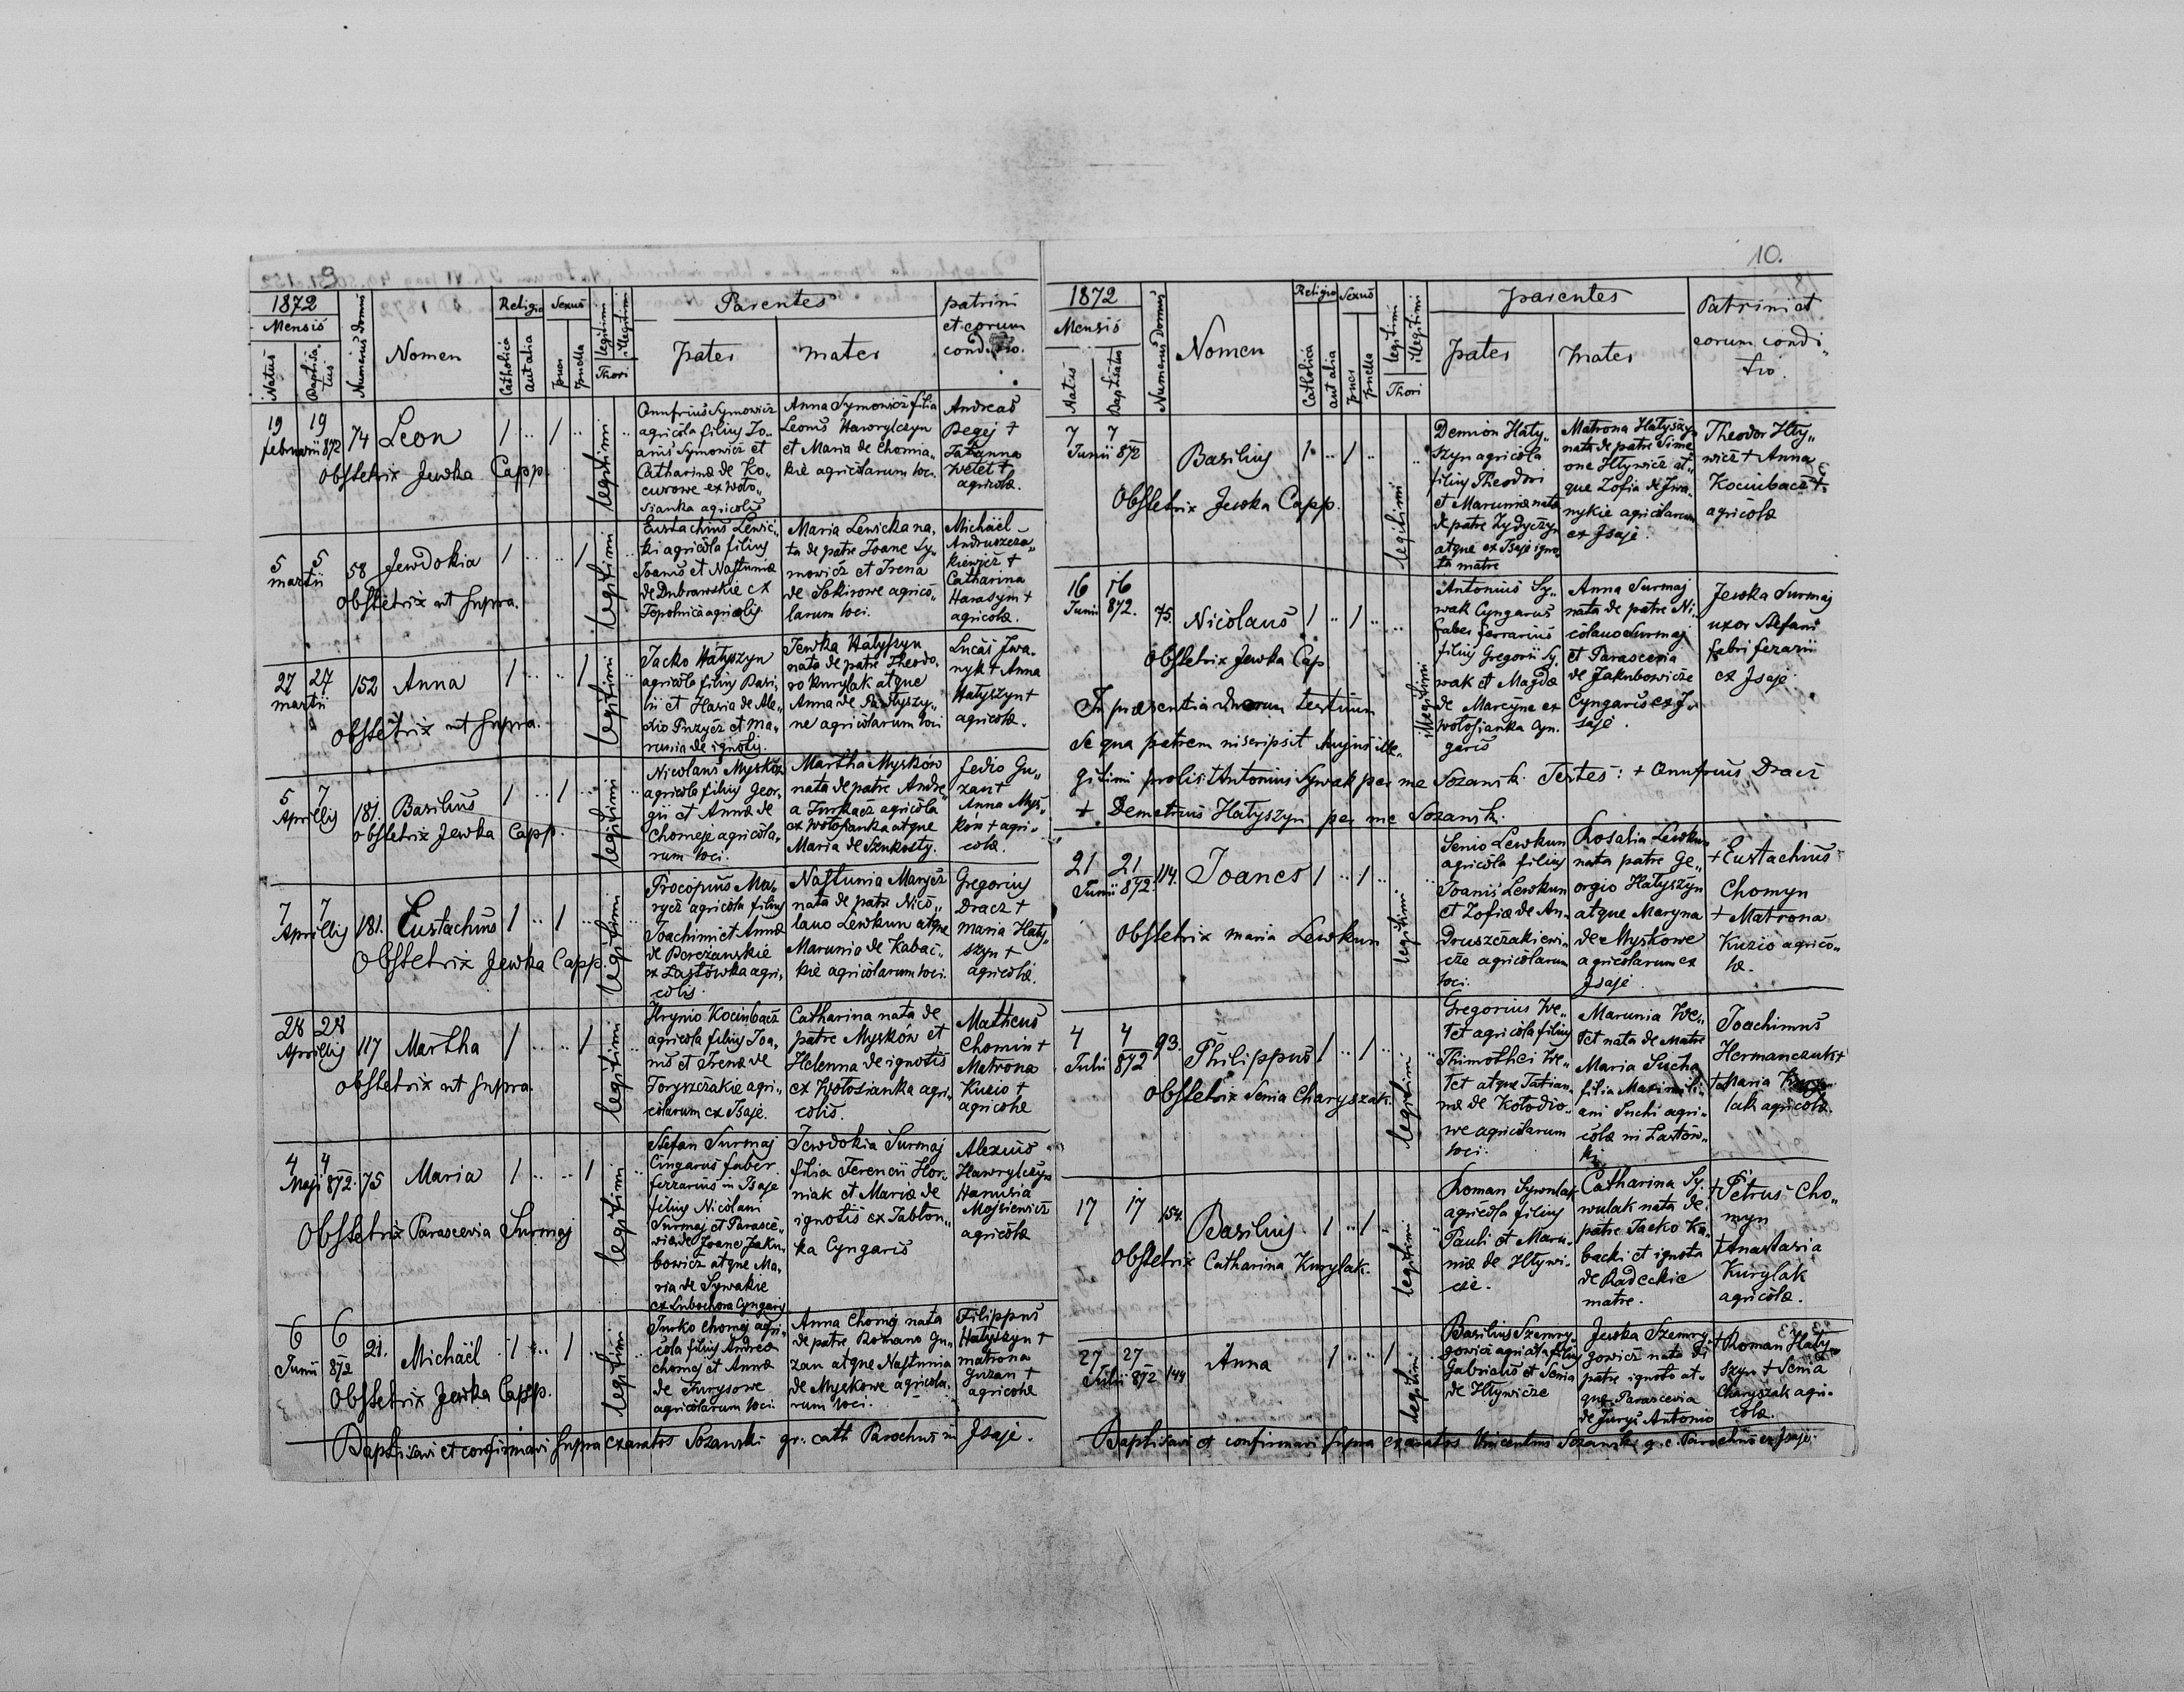 9
1872
Mensis
Natus
Baptisatus
Numerus domus
Nomen
Religio
Catholica
aut alia
Sexus
puer
puella
legitimi
illegitimi
Thori
Parentes
pater
mater
patrini
et eorum
conditio.
19 19
februarii 872
74 Leon 1 .. 1 ..
Obstetrix Jewka Capp.
legitimi
Onufrius Symowicz
agricola filius Jo„
anis Symowicz et
Catharinæ de Ko„
curowe ex Woło„
sianka agricolis
Anna Symowicz filia
Leonis Hawrylczyn
et Maria de Chomia„
kie agricolarum loci.
Andreas
Degej +
Tatianna
Wetet +
agricolæ.
5 5
martii
58 Jewdokia 1 .. .. 1
Obstetrix ut supra.
legitimi
Eustachius Lewic„
ki agricola filius
Joanis et Nastuniæ
de Dubrawskie ex
Topolnica agricolis
Maria Lewicka na„
ta de patre Joane Sy„
mowicz et Irena
de Sokirowe agrico„
larum loci.
Michäel
Andruszcza„
kiewicz +
Catharina
Harasym +
agricolæ.
27 27
martii
152 Anna 1 .. .. 1
Obstetrix ut supra.
legitimi
Jacko Hatyszyn
agricola filius Basi„
lii et Maria de Ale„
xio Przycz et Ma„
runia de ignotis.
Jewka Hatyszyn
nata de patre Theodo„
ro Kurylak atque
Anna de Hatyszy„
ne agricolarum loci
Lucas Iwa„
nyk + Anna
Hatyszyn +
agricolæ.
5 7
Aprillis
181. Basilius 1 .. 1 ..
Obstetrix Jewka Capp.
legitimi
Nicolaus Myskow
agricola filius Geor„
gii et Annæ de
Chomeje agricola„
rum loci.
Martha Myskow
nata de patre Andre„
a Turkacz agricola
ex Wołosianka atque
Maria de Szukosty.
Fedio Gu„
zan +
Anna Mys„
ków + agri„
colæ.
7 7
Aprillis
181. Eustachius 1 .. 1 ..
Obstetrix Jewka Capp.
legitimi
Procopius Ma„
rycz agricola filius
Joachimi et Annæ
de Boreżanskie
ex Łastówka agri„
colis.
Nastunia Marycz
nata de patre Nico„
lauo Lewkun atque
Marunia de Kabac„
kie agricolarum loci.
Gregorius
Dracz +
Maria Haty„
szyn +
agricolæ
28 28
Aprillis
117 Martha 1 .. .. 1
Obstetrix ut supra.
legitimi
Hrynio Kocinbacz
agricola filius Joa„
nis et Irenæ de
Toryszczakie agri„
colarum ex Isaje.
Catharina nata de
patre Myskow et
Helenna de ignotis
ex Wołosianka agri„
colis.
Matheus
Chomin +
Matrona
Kuzio +
agricolæ
4 4
Maji 872.
75 Maria 1 .. .. 1
Obstetrix Parascevia Surmaj
legitimi
Stefan Surmaj
Cingarus faber
ferrarius in Isaje
filius Nicolaui
Surmaj et Parasce„
viæ de Joane Jaku„
bowicz atque Ma„
ria de Sywakie
ex Lubochora Cyngaris
Jewdokia Surmaj
filia Terencii Hor„
niak et Mariæ de
ignotis ex Jabłon„
ka Cyngaris
Alexius
Hawrylczyn
Hanusia
Mojsiewicz
agricolæ
6 6
Junii 872
21. Michäel 1 .. 1 ..
Obstetrix Jewka Capp.
legitimi
Jurko Chomej agri„
cola filius Andrea
Chomej et Annæ
de Kurysowe
agricolarum loci
Anna Chomej nata
de patre Romano Gu„
zan atque Nastunia
de Myskowe agricola„
rum loci.
Filippus
Hatyszyn +
matrona
Guzan +
agricolæ
Baptisavi et confirmavi supra exaratos Sozanski gr. cath Parochus in Isaje.
10.
1872
Mensis
Natus
Baptisatus
Numerus Domus
Nomen
Religio
Catholica
aut alia
Sexus
puer
puella
legitimi
illegitimi
Thori
parentes
pater
mater
Patrini et
eorum condi„
tio.
7 7
Junii 872
Basilius 1 .. 1 ..
Obstetrix Jewka Capp.
legitimi
Demion Haty„
szyn agricola
filius Theodori
et Maruniæ nata
de patre Zydyczyn
atque ex Isaje igno„
ta matre
Matrona Hatyszyn
nata de patre Sime
one Hływicz at„
que Zofia de Iwa„
nykie agricolarum
ex Isaje.
Theodor Hły„
wicz + Anna
Kocinbacz +
agricolæ
16 16
Junii 872.
75. Nicolaus 1 .. 1 ..
Obstetrix Jewka Cap.
illegitimi
Antonius Sy„
wak Cyngarus
faber ferrarius
filius Gregorii Sy„
wak et Magdæ
de Marcyne ex
Wołosianka Cyn„
garis
Anna Surmaj
nata de patre Ni„
colauo Surmaj
et Parascevia
de Jakubowicze
Cyngaris ex I„
saje.
Jewka Surmaj
uxor Stefani
fabri ferarii
ex Isaje
In præsentia duorum testium
se qua patrem inscripsit hujus ille„
gitimi prolis + Antonius Sywak per me Sozanski Testes: + Onufrius Dracz
+ Demetrius Hatyszyn per me Sozanski.
21 21
Junii 872.
114. Joanes 1 .. 1 ..
Obstetrix maria Lewkun
legitimi
Senio Lewkun
agricola filius
Joanis Lewkun
et Zofiæ de An„
druszczakiewi„
cze agricolarum
loci.
Rosalia Lewkun
nata patre Ge„
orgio Hatyszyn
atque Maryna
de Myskowe
agricolarum ex
Isaje.
+ Eustachius
Chomyn
+ Matrona
Kuzio agrico„
læ.
4 4
Julii 872
93. Philippus 1 .. 1 ..
Obstetrix Senia Charyszak.
legitimi
Gregorius We„
tet agricola filius
Thimothei We„
tet atque Tatian„
næ de Kołodio„
we agricolarum
loci.
Marunia We„
tet nata de Matre
Maria Sucha
filia Maximili„
ani Suchi agri„
colæ in Łastow„
ki
Joachimus
Hermanczuk +
+ Maria
lak agricolæ.
17 17
154. Basilius 1 .. 1 ..
Obstetrix Catharina Kurylak.
legitimi
Roman Sywulak
agricola filius
Pauli et Maru„
niæ de Hływi„
cze.
Catharina Sy„
wulak nata de
patre Jacko Ka„
backi et ignota
de Radeckie
matre.
+ Petrus Cho„
myn
+ Anastasia
Kurylak
agricolæ.
27 27
Julii 872
149 Anna 1 .. .. 1
legitimi
Basilius Szemry„
gowicz agricola filius
Gabrielis et Senia
de Hływicze
Jewka Szemry„
gowicz nata de
patre ignoto at„
que Parascevia
de Jurys Antonio
+ Roman Haty„
szyn + Senia
Charyszak agri„
colæ.
Baptisavi et confirmavi supra exaratos Vincentius Sozanski g. c. Parochus ex Isaje.